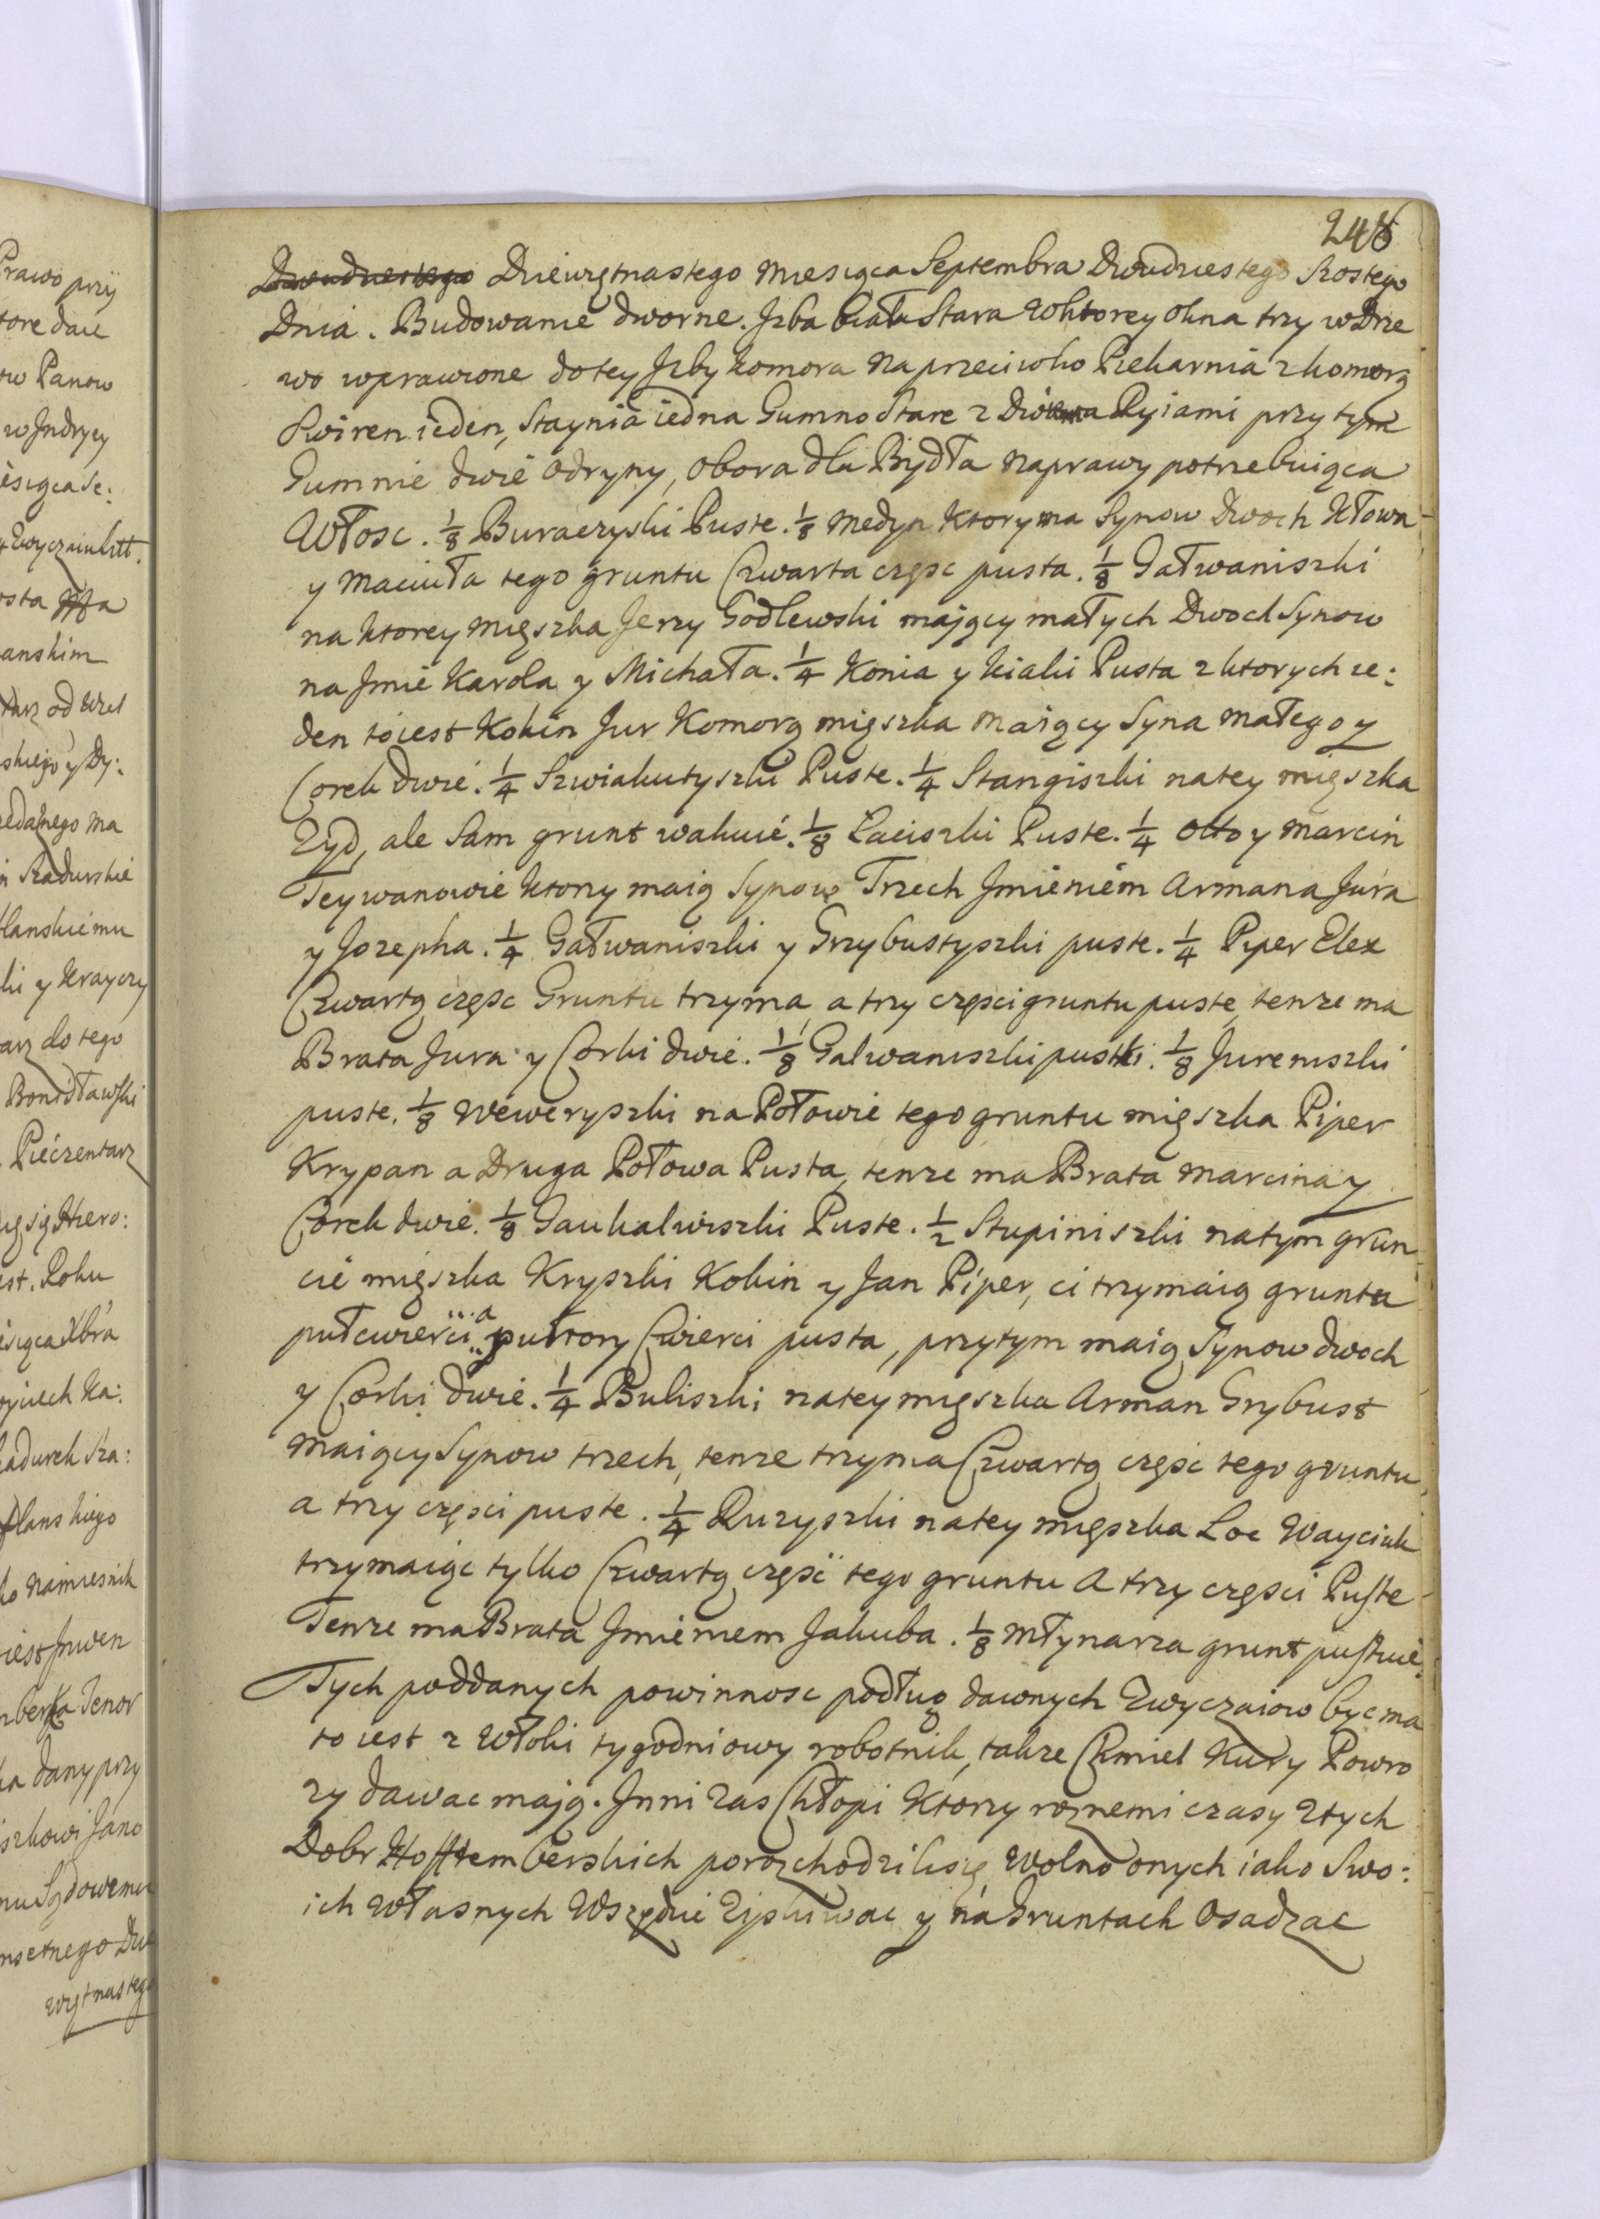 248
Dwudziestego Dziewiętnastego Miesiąca Septembra Dwudziestego Szostego
Dnia. Budowanie dworne. Jzba biała Stara w ktorey okna trzy w Drze
wo wprawione do tey Jzby komora naprzeciwko Piekarnia z komorą
Swiren ieden, Staynia iedna Gumno Stare z Dwiema Ryiami przy tym
Gumnie dwie Odryny, Obora dla Bydła naprawy potrzebuiąca
Włosc. 1/8 Buraczyski Puste. 1/8 Medyn ktory ma Synow Dwoch Kłowa
y Maciuła tego gruntu Czwarta częsc pusta. 1/8 Gatwaniszki
na ktorey mięszka Jerzy Godlewski mający małych Dwoch Synow
na Jmie Karola y Michała. 1/4 Konia y Kiaki Pusta z ktorych ie:
den to iest Kokin Jur Komorą mięszka maiący Syna małego y
Corek dwie. 1/4 Szwiakutyszki Puste. 1/4 Stangiszki na tey mięszka
Zyd, ale Sam grunt wakuie. 1/8 Łaciszki Puste. 1/4 Otto y Marcin
Teywanowie ktory maią Synow Trzech Jmieniem Armana Jura
y Jozepha. 1/4 Gatwaniszki y Grzybustyszki puste. 1/4 Piper Elex
Czwartą częsc Gruntu trzyma a trzy częsci gruntu puste, tenze ma
Brata Jura y Corki dwie. 1/8 Galwaniszki pustki. 1/8 Jureniszki
puste. 1/8 Weweryszki na Połowie tego gruntu mięszka Piper
Krypan a Druga Połowa Pusta, tenze ma Brata Marcina y
Corek dwie. 1/8 Gaukalwiszki Puste. 1/2 Stupiniszki na tym grun
cie mięszka Kryszki Kokin y Jan Piper, ci trzymaią gruntu
puł cwierci a pułtory Cwierci pusta, przytym maią Synow dwoch
y Corki dwie. 1/4 Buliszki na tey mięszka Arman Grybust
maiący Synow trzech, tenze trzyma Czwartą częsc tego gruntu,
a trzy częsci puste. 1/4 Ruzyszki na tey mięszka Loc Wayciak
trzymaiąc tylko Czwartą częsc tego gruntu A trzy częsci Puste
Tenze ma Brata Jmieniem Jakuba. 1/8 Młynarza grunt pustuie.
Tych poddanych powinnosc podług dawnych Zwyczaiow byc ma
to iest z Włoki tygodniowy robotnik, takze Chmiel Kury Powro
zy dawac mają. Jnni zas Chłopi ktorzy roznemi czasy z tych
Dobr Hofftemberskich porozchodzili się, Wolno onych iako Swo:
ich Własnych Wszędzie Zyskiwac y na Gruntach Osadzac